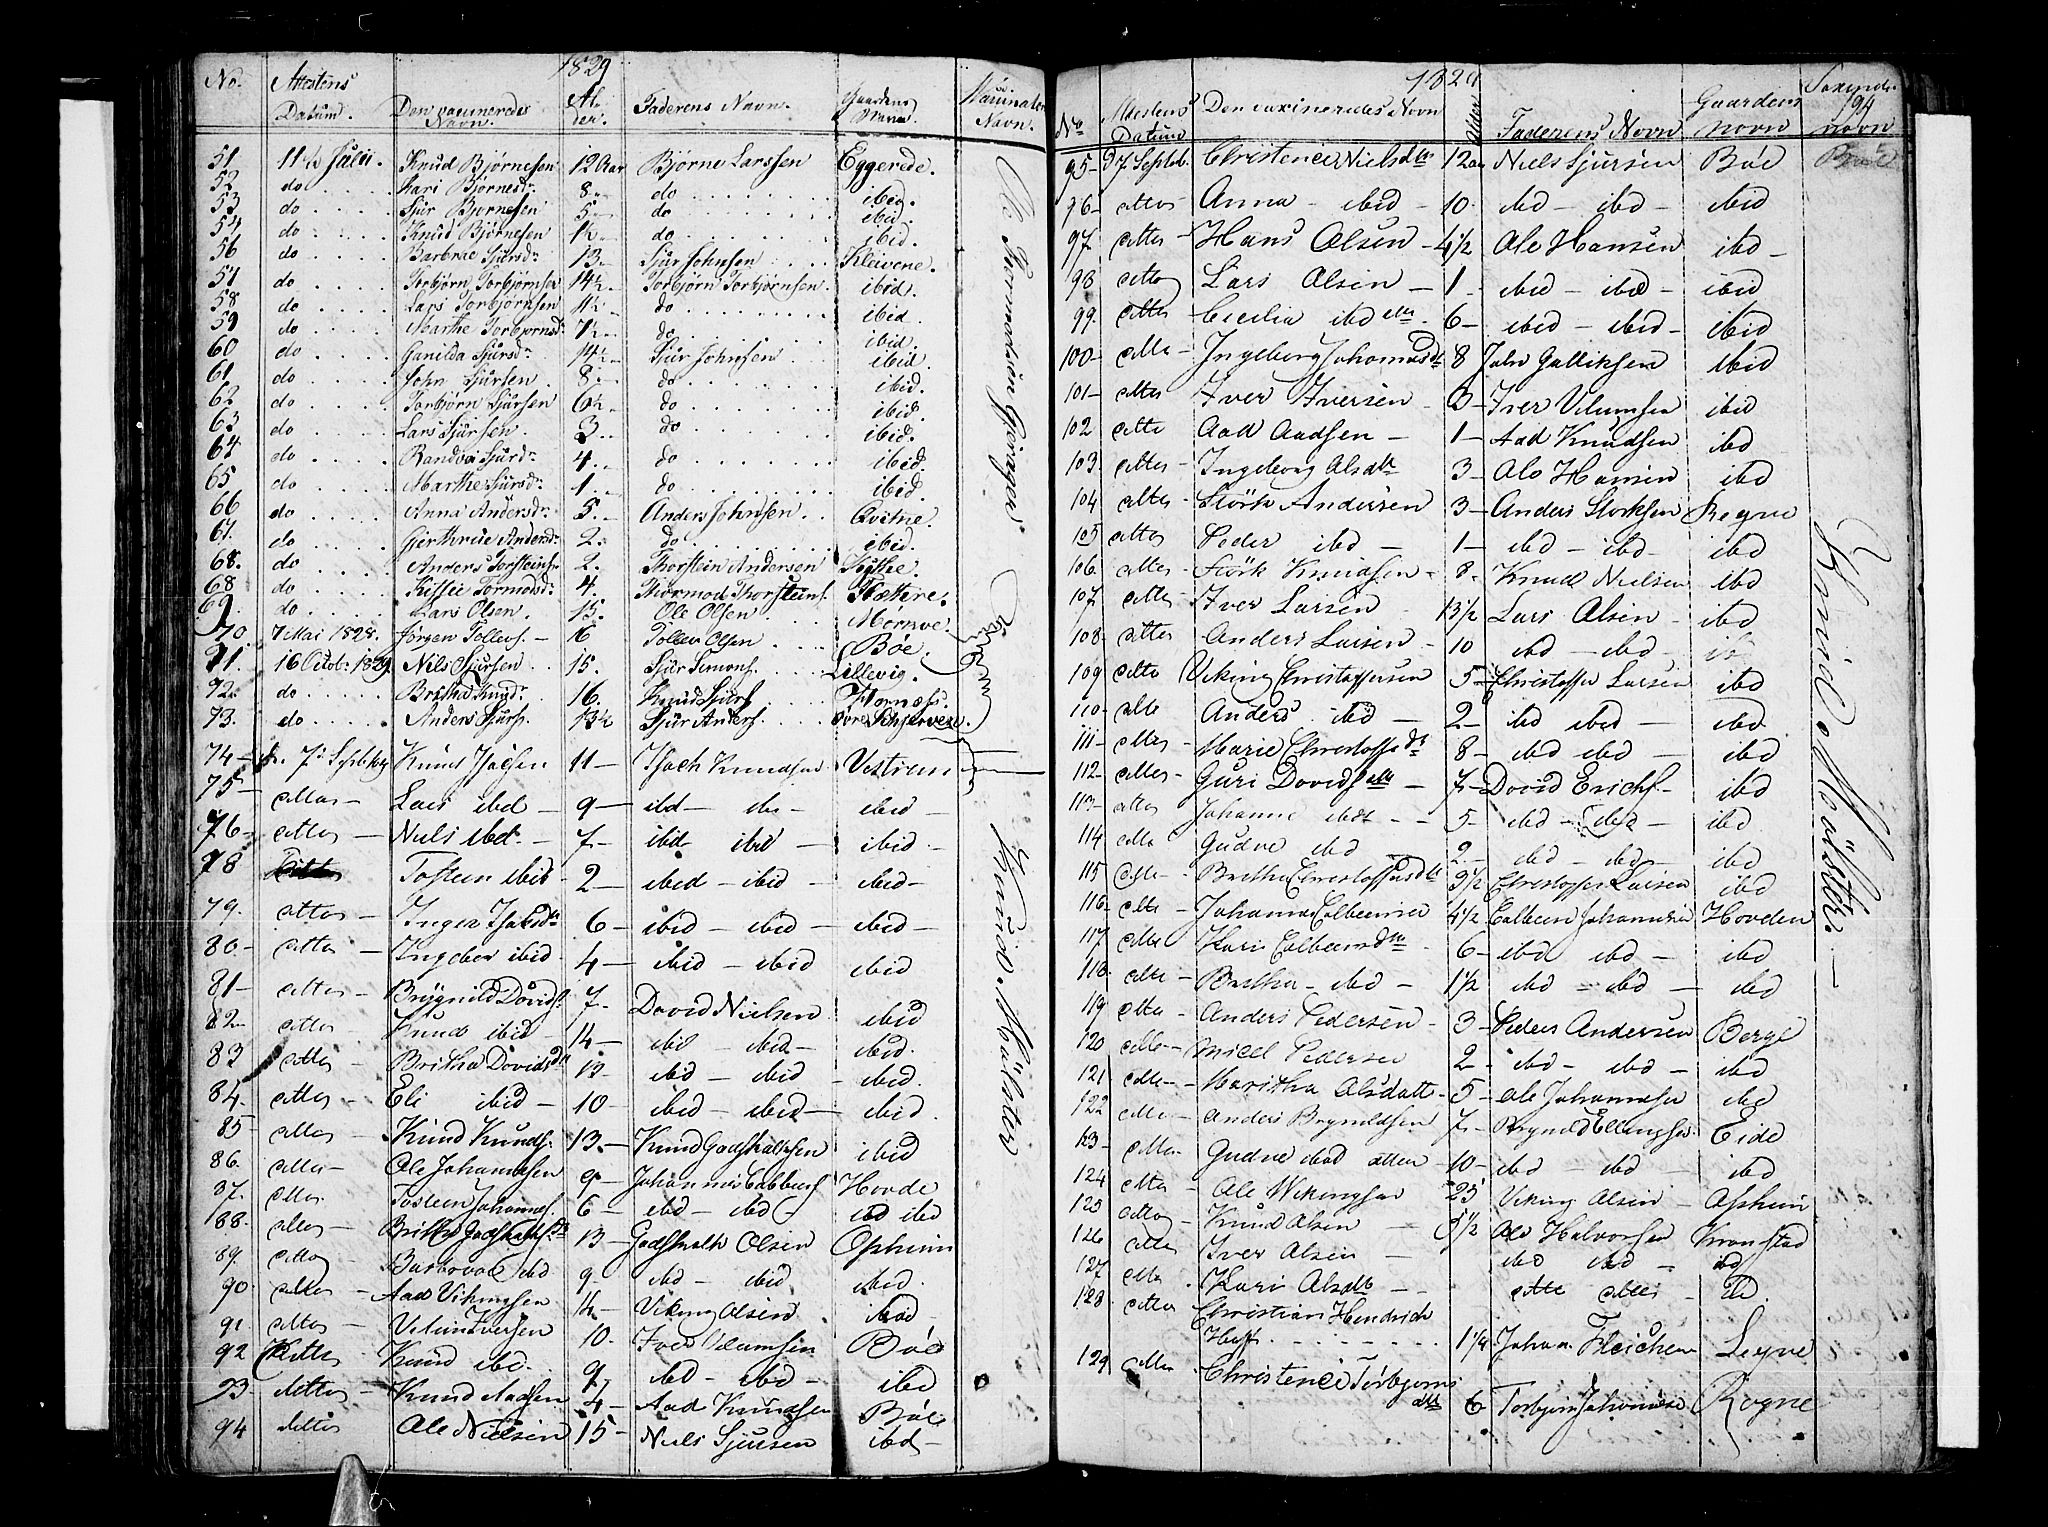 1829
No. Attestens Datum. Den vaccineredes Navn. Al- der. Faderens Navn. Gaardens Navn Navn.
51 11te Julii. Knud Bjørnesen 12 Aar Bjørne Larssen Eggerede.
52 do Kari Bjørnesd: 8 do ibid.
53 do Sjur Bjørnesen 5 do ibid.
54 do Knud Bjørnesen 1½ do ibid.
56 do Barbrae Sjursd: 13 Sjur Johnsen Kleivene.
57 do Torbjørn Torbjørnsen 14½ Torbjørn Torbjørnsen. ibid.
58 do Lars Torbjørnsen 11½ do ibid.
59 do Marthe Torbjørnsd: 7½ do ibid.
60 do Gunilda Sjursd: 14½ Sjur Johnsen ibid.
61 do John Sjursen 8 do ibid.
62 do Torbjørn Sjursen 6½ do ibid.
63 do Lars Sjursen. 3 do ibid.
64 do Randvei Sjursd: 4 do ibid.
65 do Marthe Sjursd: 1 do ibid.
66 do Anna Andersd: 5. Anders Johnsen Qvitne.
67. do Gjerthrue Andersd: 2. do ibid.
68. do Anders Torsteins. 2. Thorstein Andersen
68 do Tormodsd: 4. Thormod Thorsteins.
69. do Lars Olsen. 15. Ole Olsen
70 7 Mai 1828. Jørgen Tollevs. 16 Tollev Olsen Bøe.
71. 16 Octob: 1829. Nils Sjursen 15. Sjur Simons. Lillevig.
72. do Britha Knudsd: 16. Knud Sjurs.
73. do Anders Sjurs. 13½ Sjur Anders.
74 7de Septbr Knud Isacsen 11 Isach Knudsen Vestrem
75 attes Lars ibd 9 ibd ibd ibid
76 attes Niels ibd 7 ibid ibid ibid
78 Tosteen ibid 2 ibid ibid ibid
79. attes Inger Isaksd 6 ibid ibid ibid
80 attes Ingebor ibid 4 ibid ibid ibid
81 attes Brygnild Dovids 7 Dovid Nielsen ibid
82 attes Knud ibid 14 ibid ibid ibid.
83 attes Britha Dovidsd 12 ibid ibid ibid.
84. attes Eli ibid 10 ibid ibid ibid
85 attes Knud Knuds. 13 Knud Godskalksen ibid
86. attes Ole Johannesen 9 Johannes Hovde
87. attes Tosteen Johannes. 6 ibd ibd ibd ibid
88. attes Britha Godskalks 13 Godskalk Olsen Opheim
89. attes Barbroe ibd 9 ibd ibid ibid.
90 attes Aad Vikingsen 14 Viking Olsen ibid
91 attes Velum Iversen 10. Iver Velumsen Bøe
92 attes Knud ibd 9 ibd ibd ibid
93 attes Knud Aadsen 4 Aad Knudsen Bøe
94 attes Ole Nielsen 15 Niels Sjursen ibd
Ole Tormodsen Gjerager
Knud Mølster
1829
194
No Attestens Datum Den vaxineredes Navn Alder Faderens Navn Gaardens navn navn
95 7 Septbr. Christence Nielsdtr 12 aar Niels Sjursen Bøe
96 attes Anna ibid 10 ibd ibd ibid
97 attes Hans Olsen 4½ Ole Hansen ibd
98 attes Lars Olsen 1 ibid ibd ibid
99. attes Cecilia ibd 6 ibid ibid ibid
100 attes Ingeborg Johannesd 8 John Gulliksen ibid
101 attes Iver Iversen 3 Iver Velumsen ibid
102 attes Aad Aadsen 1 Aad Knudsen ibd
103. attes Ingeborg Olsdtr 3 Ole Hansen ibd
104 attes Størk Andersen 3 Anders Storksen Regne
105 attes Peder ibd 1 ibd ibd ibd
106 attes Størk Knudsen 8 Knud Nielsen ibd
107 attes Iver Larsen 13½ Lars Olsen ibd
108 attes Anders Larsen 10 ibd ibd
109 attes Viking Christoffersen 5 Christoffer Larsen ibd
110 attes Anders ibid 2 ibd ibid ibd.
111 attes Marie Christoffsdt 8 ibd ibd ibd
112 attes Guri Dovids 7 Dovid Erichs. ibd
113 attes Johanne 5 ibd ibd ibd
114 attes Gudve ibd 2 ibd ibd ibd
115 attes Britha Christoffersd 9½ Christoffer Larsen ibd
116 attes Johannes Colbeensen 4½ Colbeen Johannesen Hovden
117 attes Kari Colbeensd 6 ibd ibd ibd
118 attes Britha ibd 1½ ibd ibd ibd
119 attes Anders Pedersen 3 Peder Andersen Berge
120 attes Micel Pedersen 2 ibd ibd ibd
121 attes Maritha Olsdatt 5 Ole Johannesen ibd
122 attes Anders Brynildsen 7 Brynild Ellingsen Eide
123 attes Gudve ibd 10 ibd ibd ibd
124 attes Ole Wikingsen 25 Viking Olsen Opheim
125 attes Knud Olsen 5½ Ole Halvorsen
126 attes Iver Olsen ibd ibd ibd
127 attes Kari Olsdtr attes attes ibd.
128 attes Christian Hendrich
1¼ Johan Fleicher
129 attes Christence Torbjørns
dtr 6 Torbjørn Johannesen Rogne
Knud Mølster